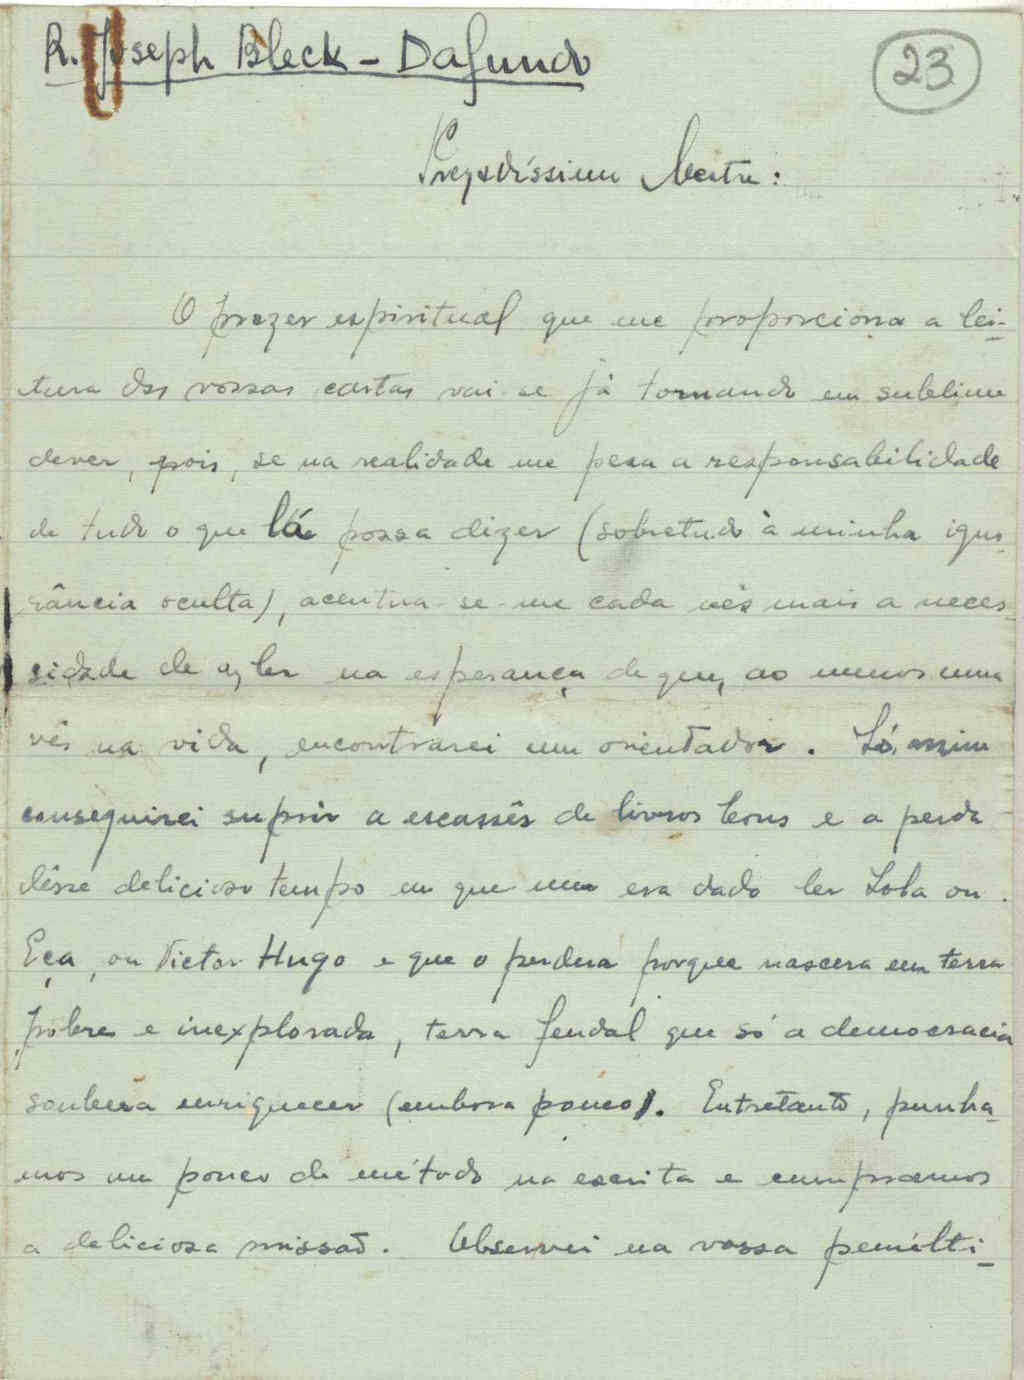 R. Joseph Bleck - Dafundo
23
Prezadíssimo Mestre:
O prazer espiritual que me proporciona a lei-
tura das vossas cartas vai-se já tornando em sublime
dever, pois, se na realidade me pesa a responsabilidade
de tudo o que lá possa dizer (sobretudo à minha igno-
rância oculta), acentua-se-me cada vês mais a neces-
sidade de as ler na esperança de que, ao menos uma
vês na vida, encontrarei um orientador. Só assim
conseguirei suprir a escassês de livros bons e a perda
dêsse delicioso tempo em que me era dado ler Zola ou
Eça, ou Victor Hugo e que o perdera porque nascera em terra
pobre e inexplorada, terra feudal que só a democracia
soubera enriquecer (embora pouco). Entretanto, punha-
mos um pouco de método na escrita e cumpramos
a deliciosa missão. Observei na vossa penúlti-